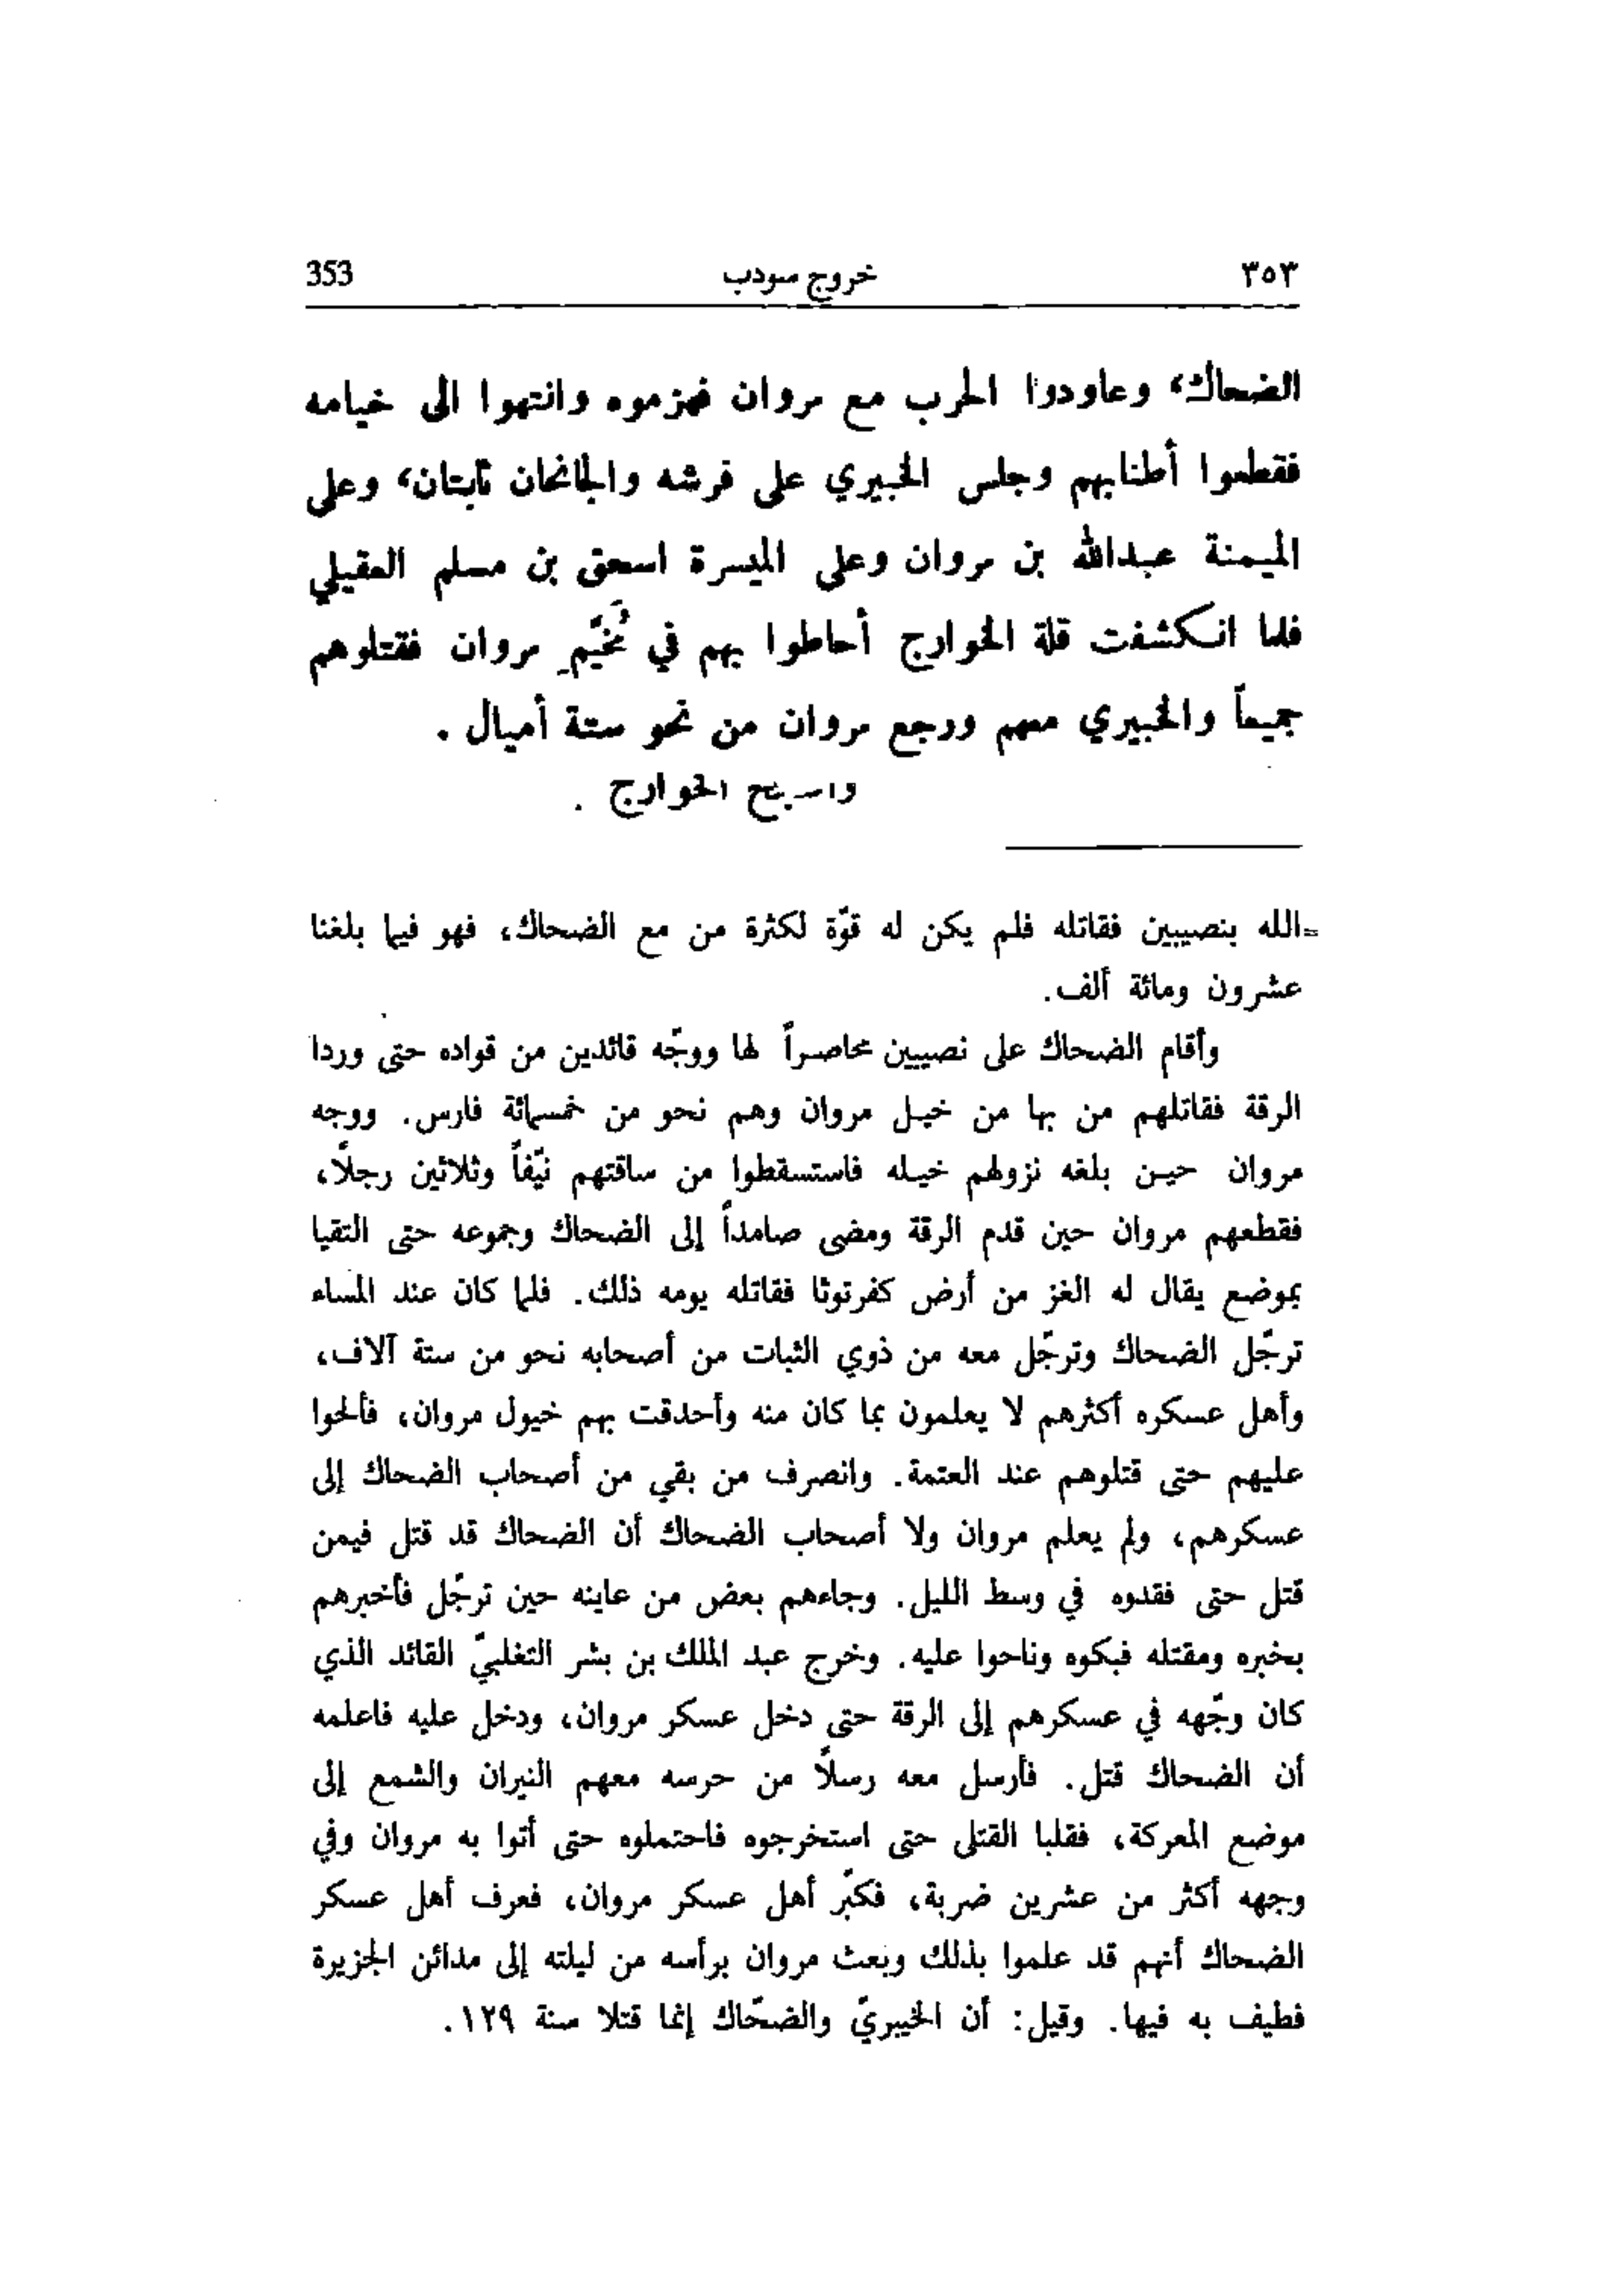 ٣٥٣ خروج سودب 353
الضحاك، وعاودوا الحرب مع مروان فهزموه وانتهوا الى خيامه
فقطعوا أطنابهم وجلس الخبيري على فرشه والجانحان ثابتان، وعلى
الميمنة عبدالله بن مروان وعلى الميسرة اسحق بن مسلم العقيلي
فلما انكشفت قلة الخوارج أحاطوا بهم في مُخَيَّمِ مروان فقتلوهم
جميعاً والخبيري معهم ورجع مروان من نحو ستة أميال .
الخوارج .
=الله بنصيبين فقاتله فلم يكن له قوّة لكثرة من مع الضحاك، فهو فيما بلغنا
عشرون ومائة ألف.
وأقام الضحاك على نصيبين محاصراً لها ووجّه قائدين من قواده حتى وردا
الرقة فقاتلهم من بها من خيل مروان وهم نحو من خمسمائة فارس. ووجه
مروان حين بلغه نزولهم خيله فاستسقطوا من ساقتهم نيّفاً وثلاثين رجلاً،
فقطعهم مروان حين قدم الرقة ومضى صامداً إلى الضحاك وجموعه حتى التقيا
بموضع يقال له الغز من أرض كفرتوثا فقاتله يومه ذلك. فلما كان عند المساء
ترجّل الضحاك وترجّل معه من ذوي الثبات من أصحابه نحو من ستة آلاف،
وأهل عسكره أكثرهم لا يعلمون بما كان منه وأحدقت بهم خيول مروان، فألحوا
عليهم حتى قتلوهم عند العتمة. وانصرف من بقي من أصحاب الضحاك إلى
عسكرهم، ولم يعلم مروان ولا أصحاب الضحاك أن الضحاك قد قتل فيمن
قتل حتى فقدوه في وسط الليل. وجاءهم بعض من عاينه حين ترجّل فأخبرهم
بخبره ومقتله فبكوه وناحوا عليه. وخرج عبد الملك بن بشر التغلبيّ القائد الذي
كان وجّهه في عسكرهم إلى الرقة حتى دخل عسكر مروان، ودخل عليه فاعلمه
أن الضحاك قتل. فأرسل معه رسلاً من حرسه معهم النيران والشمع إلى
موضع المعركة، فقلبا القتلى حتى استخرجوه فاحتملوه حتى أتوا به مروان وفي
وجهه أكثر من عشرين ضربة، فكبّر أهل عسكر مروان، فعرف أهل عسكر
الضحاك أنهم قد علموا بذلك وبعث مروان برأسه من ليلته إلى مدائن الجزيرة
فطيف به فيها. وقيل: أن الخيبريّ والضحّاك إنما قتلا سنة ١٢٩.